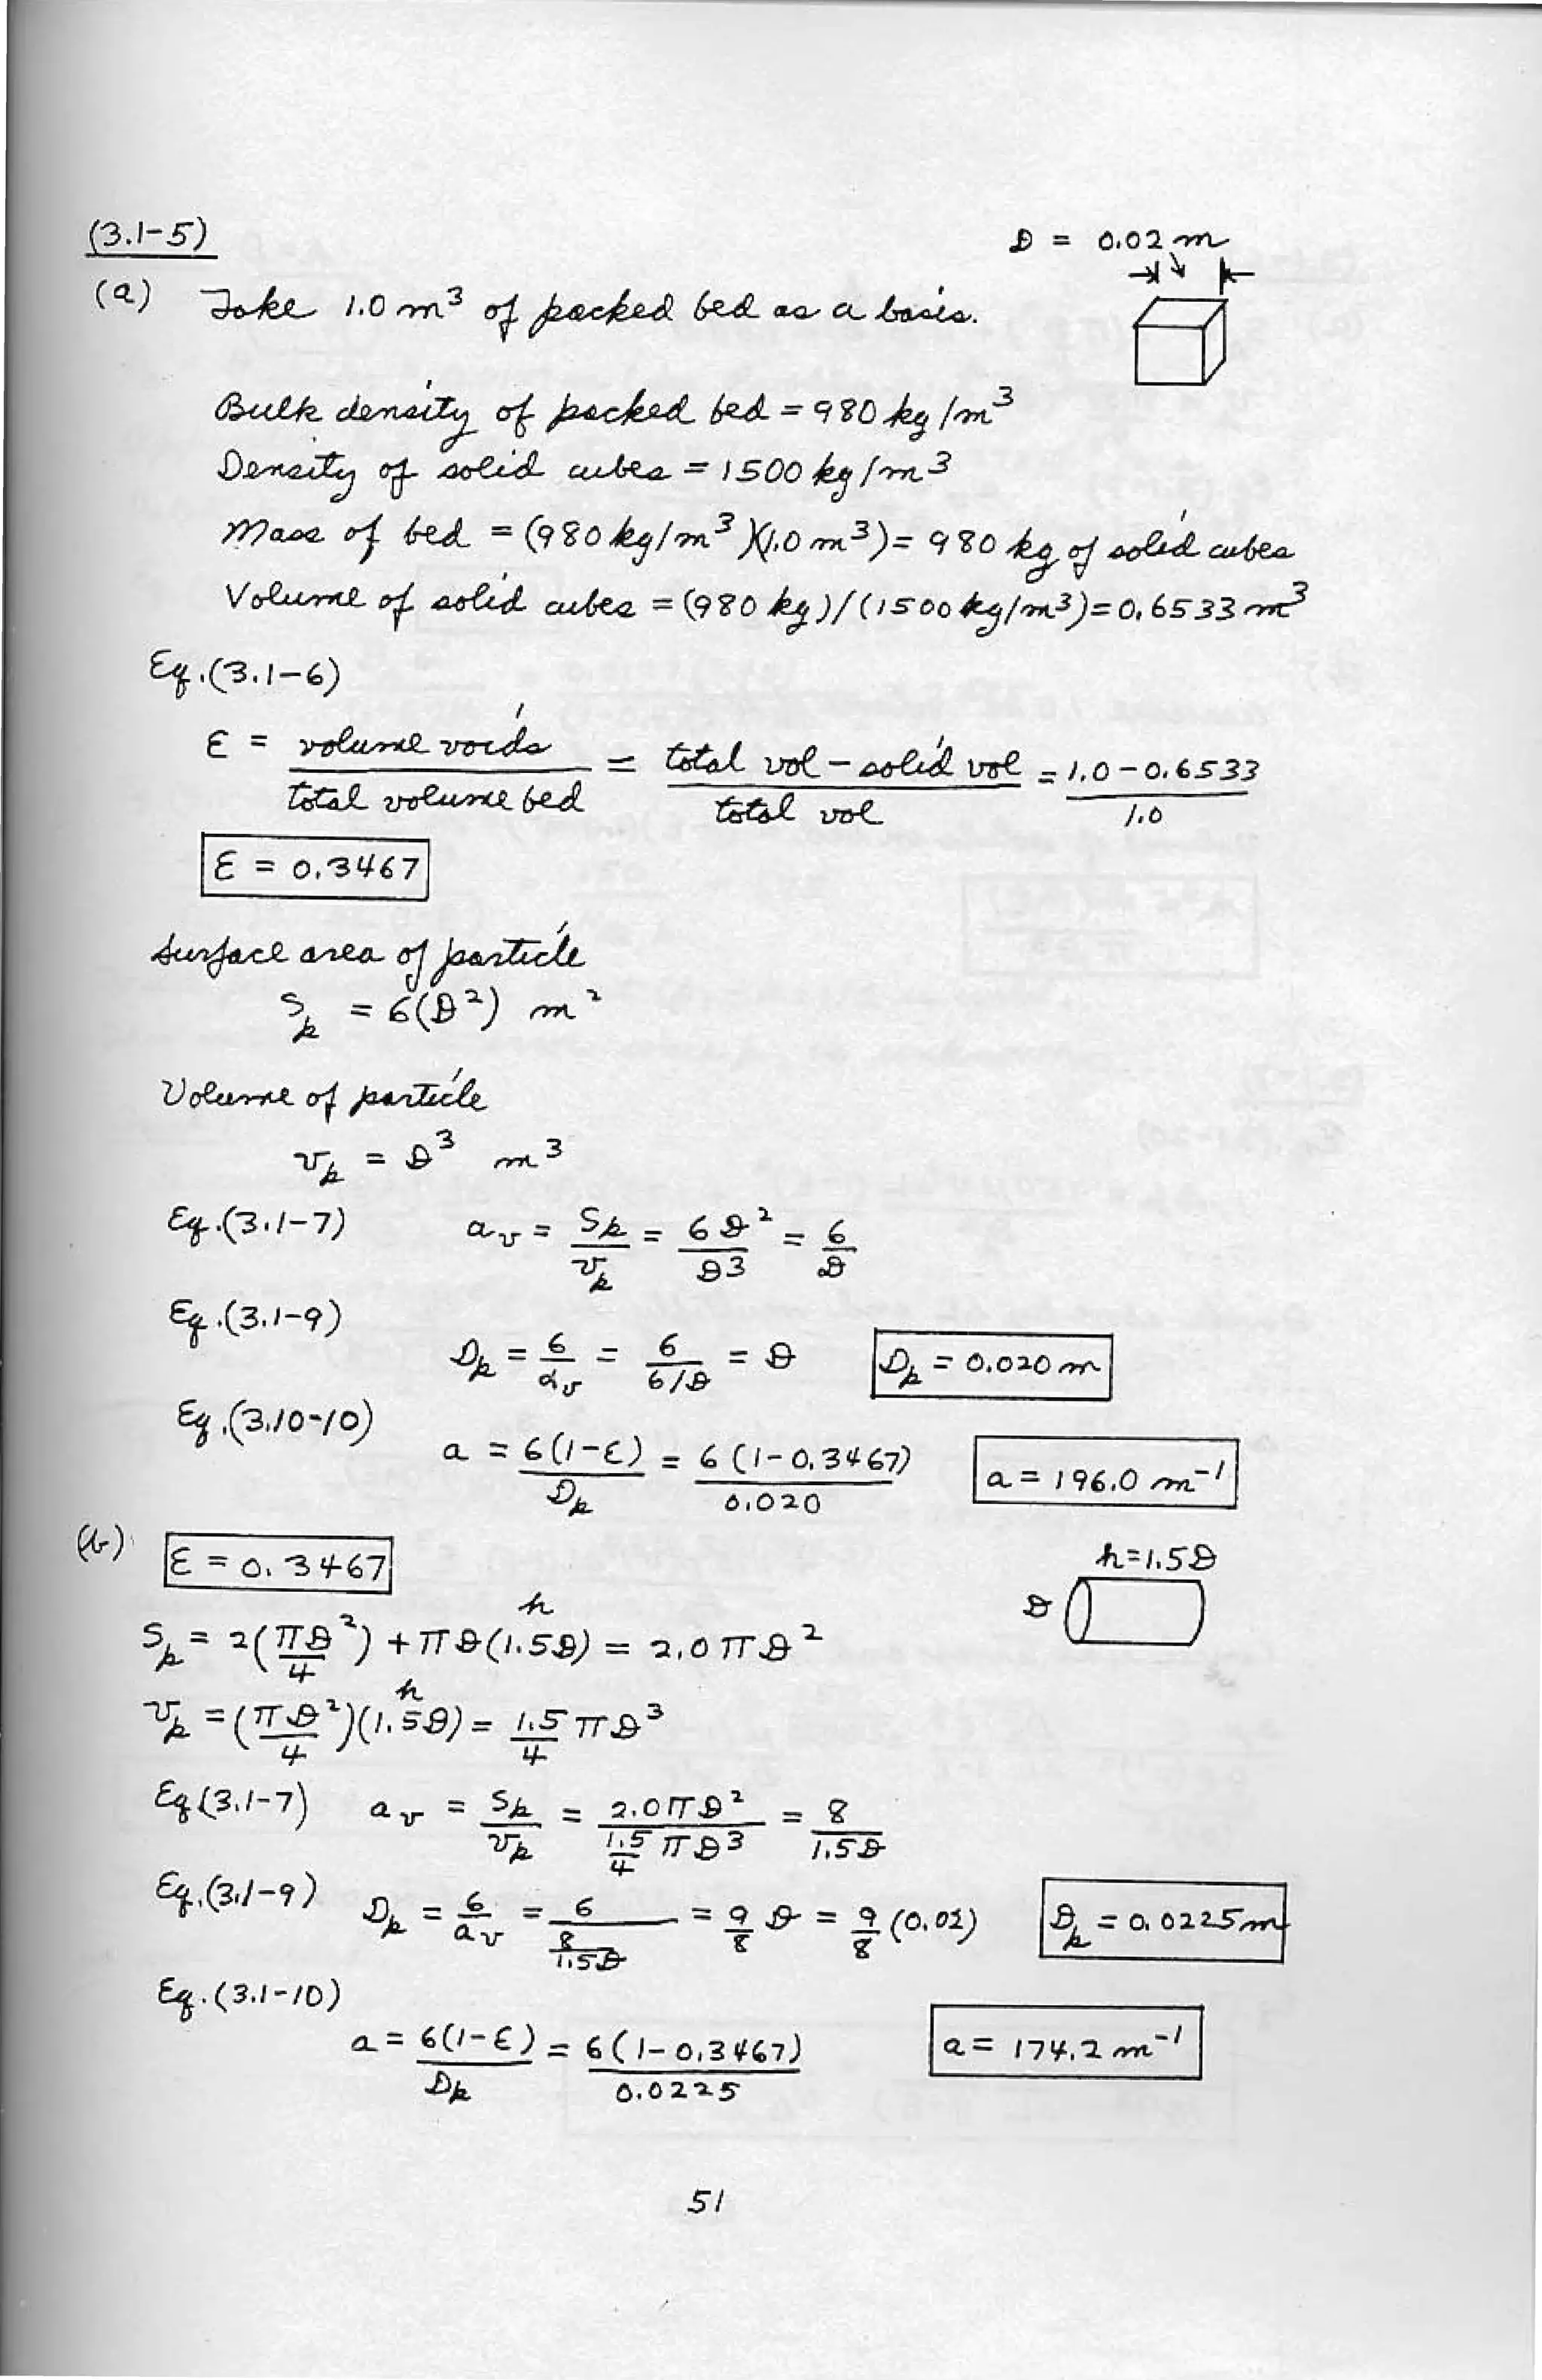 (3.1-5)
D = 0.02 m
(a) Take 1.0 m³ of packed bed as a basis.
Bulk density of packed bed = 980 kg/m³
Density of solid cubes = 1500 kg/m³
Mass of bed = (980 kg/m³)(1.0 m³) = 980 kg of solid cubes
Volume of solid cubes = (980 kg)/(1500 kg/m³) = 0.6533 m³
Eq.(3.1-6)
ε = volume voids / total volume bed = total vol - solid vol / total vol = 1.0 - 0.6533 / 1.0
ε = 0.3467
Surface area of particle
Sp = 6(D²) m²
Volume of particle
vp = D³ m³
Eq.(3.1-7) av = Sp/vp = 6D²/D³ = 6/D
Eq.(3.1-9)
Dp = 6/av = 6/(6/D) = D Dp = 0.020 m
Eq.(3.10-10)
a = 6(1-ε)/Dp = 6(1-0.3467)/0.020 a = 196.0 m⁻¹
(b) ε = 0.3467
h=1.5D
D
h
Sp = 2(πD²/4) + πD(1.5D) = 2.0πD²
h
vp = (πD²/4)(1.5D) = 1.5/4 πD³
Eq(3.1-7) av = Sp/vp = 2.0πD² / (1.5/4 πD³) = 8/1.5D
Eq.(3.1-9) Dp = 6/av = 6/(8/1.5D) = 9/8 D = 9/8 (0.02) Dp = 0.0225m
Eq.(3.1-10)
a = 6(1-ε)/Dp = 6(1-0.3467)/0.0225 a = 174.2 m⁻¹
51